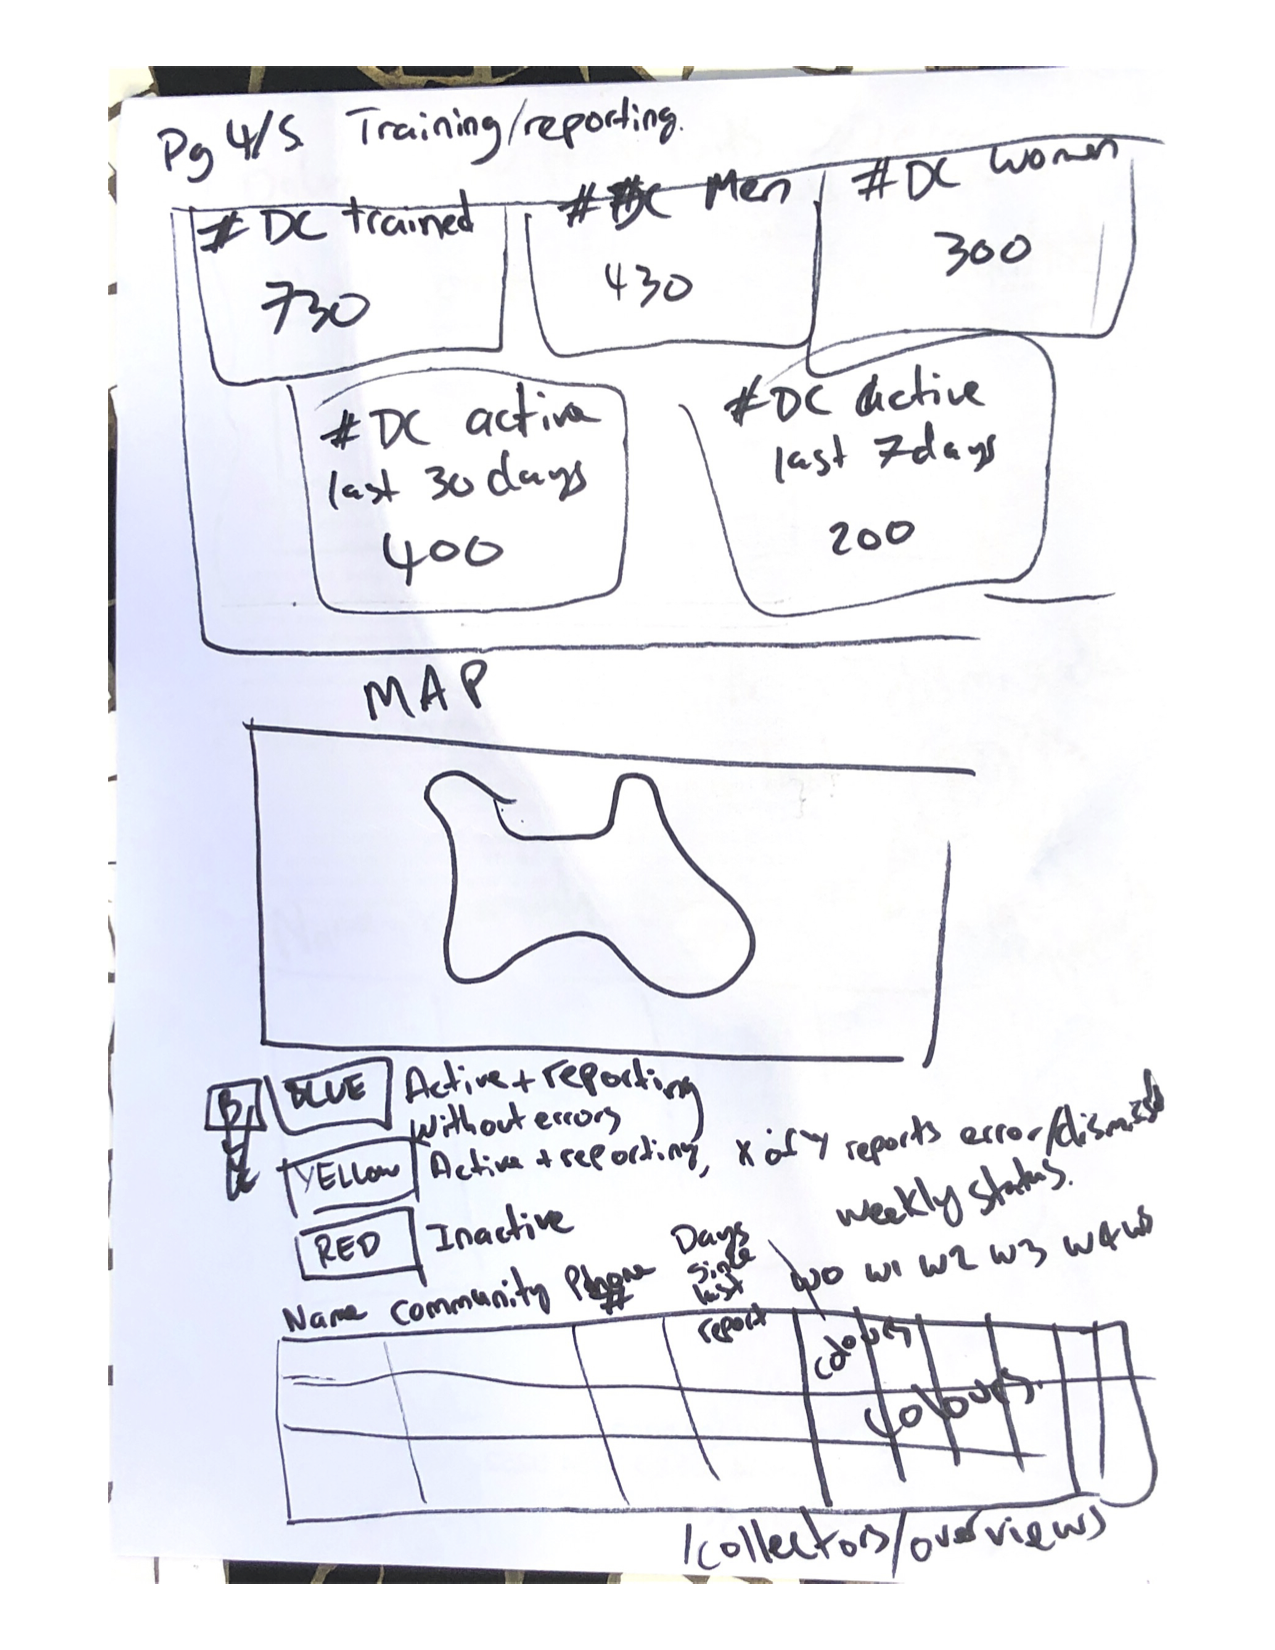 Pg 4/5. Training/reporting.
# DC trained
730
# DC Men
430
# DC Women
300
# DC active
last 30 days
400
# DC active
last 7 days
200
MAP
B
BLUE Active + reporting
without errors
YELLOW Active + reporting, x of y reports error/dismissed
RED Inactive
weekly status.
Name Community Phone # Days since last report W0 W1 W2 W3 W4 W5
colours
colours.
/collectors/overviews